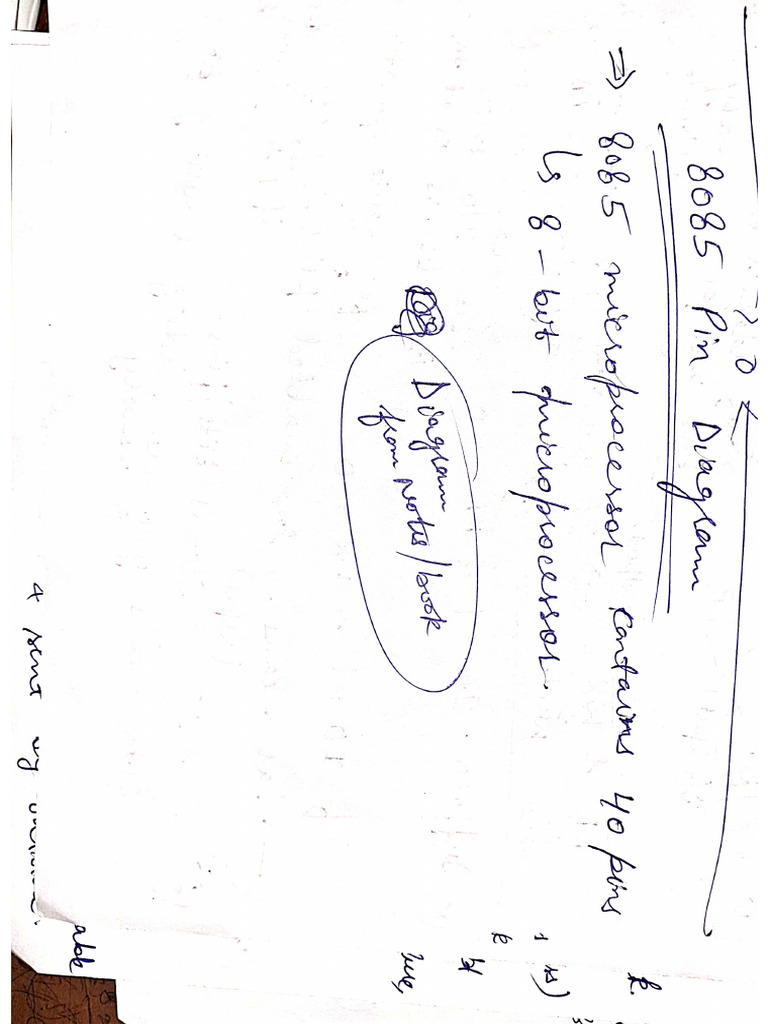 8085 Pin Diagram
⇒ 8085 microprocessor contains 40 pins
↳ 8-bit microprocessor.
Diagram
from notes/book